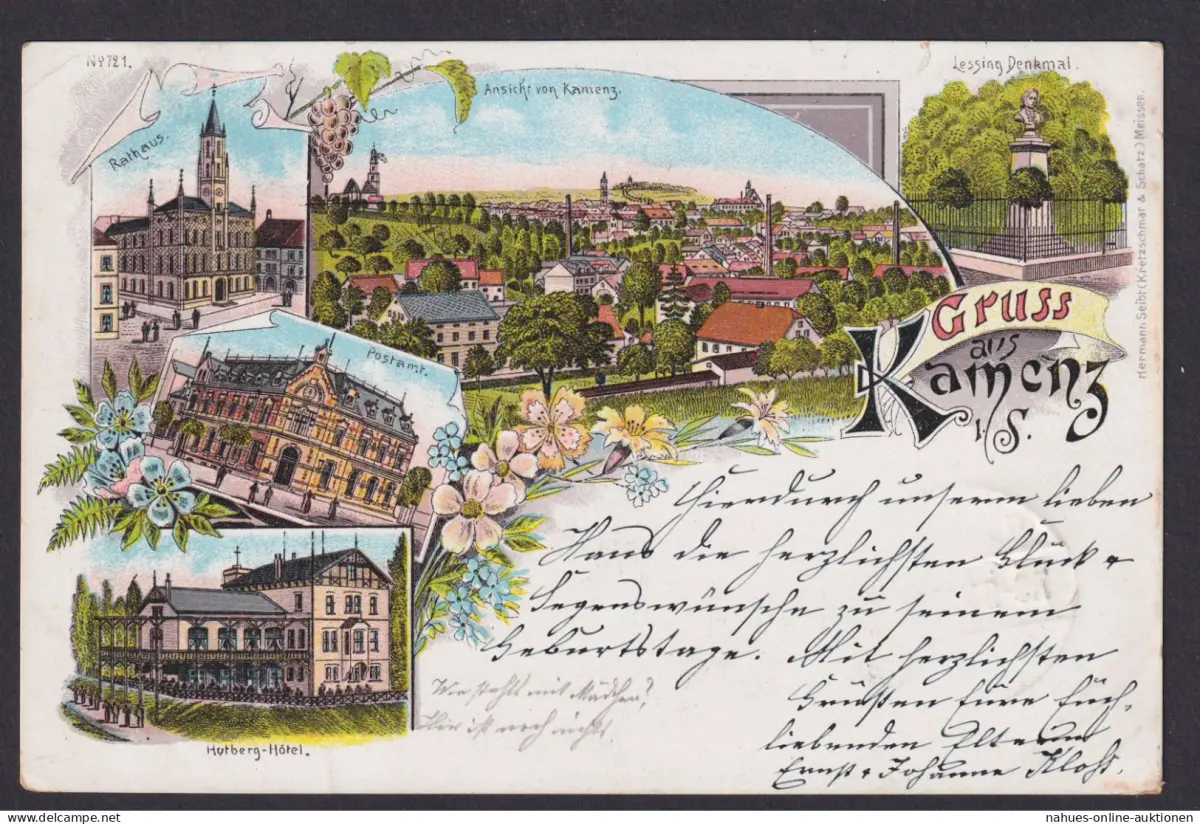 No 721.
Rathaus.
Ansicht von Kamenz.
Lessing Denkmal.
Postamt.
Hutberg-Hôtel.
Gruss
aus
Kamenz
i. S.
Hermann Seibt (Kretzschmar & Schatz) Meissen.
Hierdurch unserm lieben
Hans die herzlichsten Glück- &
Segenswünsche zu seinem
Geburtstage. Mit herzlichsten
Grüßen Eure Euch
liebenden Eltern
Ernst & Johanne Kloß.
Wie stehts mit Mädchen?
Hier ist noch nichts
nahues-online-auktionen
© delcampe.net